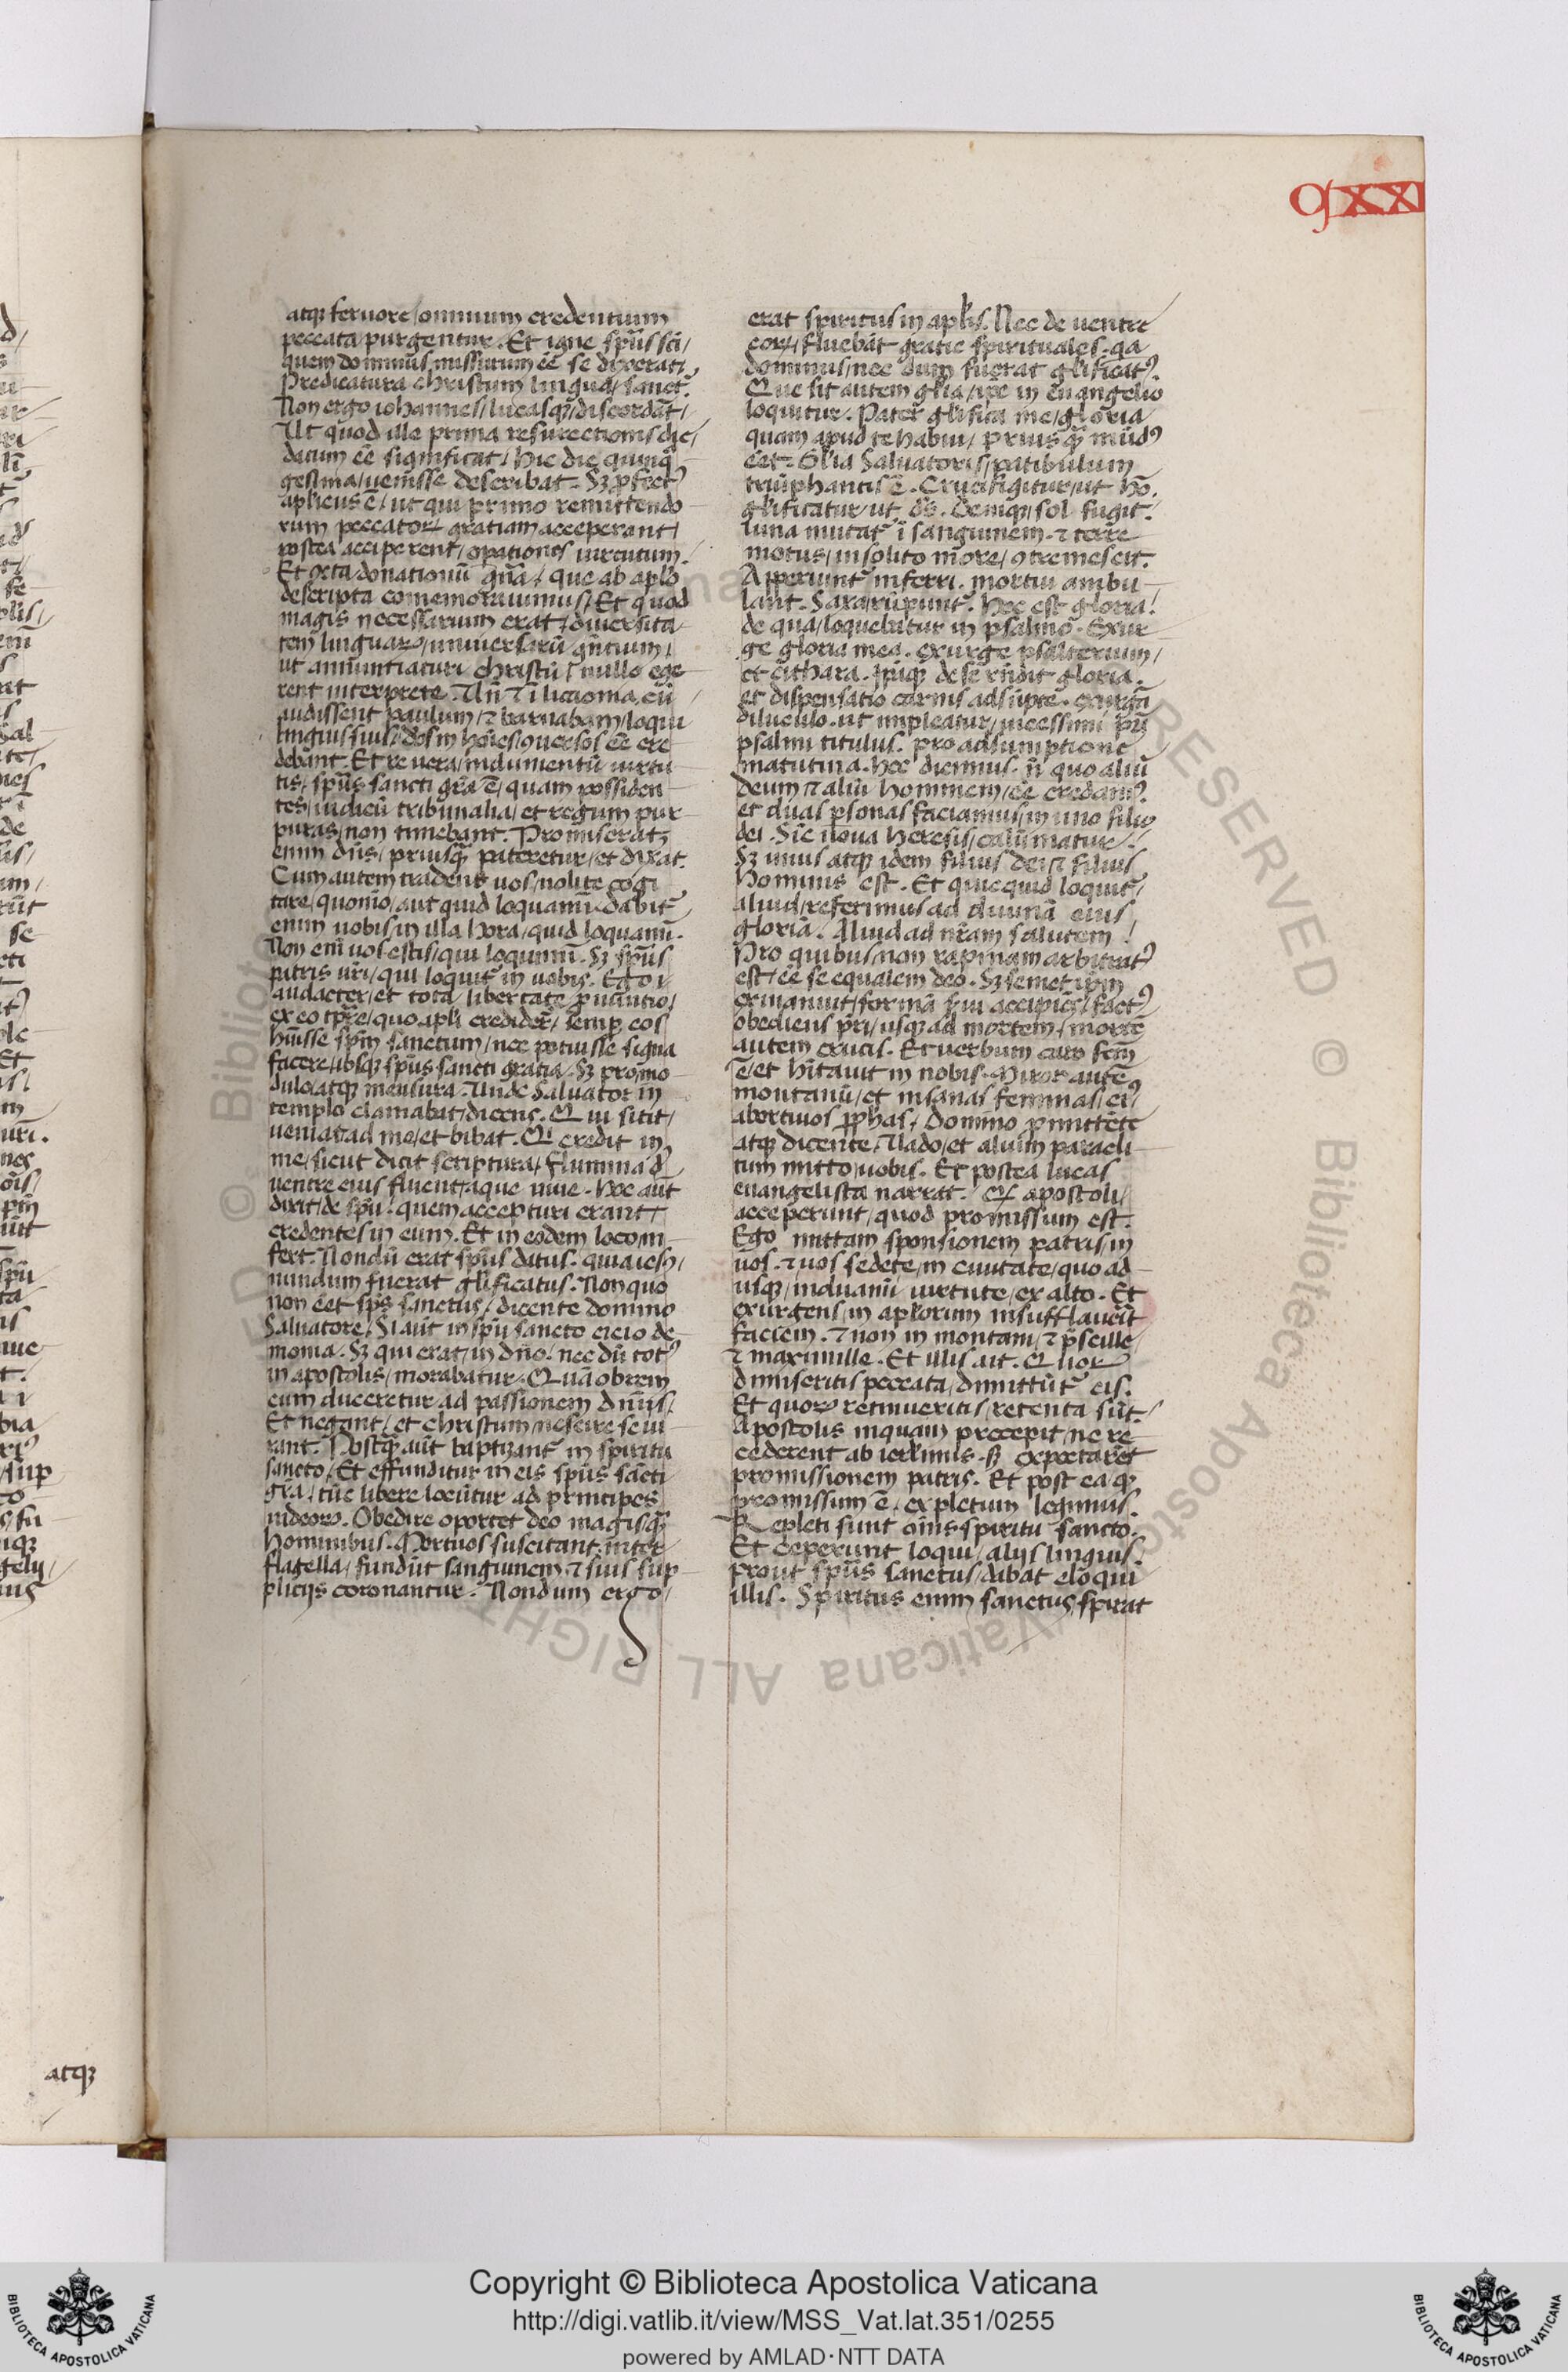 CXXI
atq; feruore/omnium credentium
peccata/purgentur. Et igne sp̄us sc̄i/
quem dominus missurum eē se dixerat/
Predicatura christum lingua/sanct̄.
Non ergo iohannes/lucasq;/discordāt/
Ut quod ille prima resurectionis die/
datum eē significat/hic die quinq̄
gesima/uenisse describat. Sꝫ ꝓfect⁹
aplicus ē/ut qui primo remittendo
rum peccatoꝝ gratiam acceperant/
postea acciperent/opationes uirtutum.
descripta comemorauimus/Et quod
magis necessarium erat/diuersita
tem linguaꝝ/uniuersarū gn̄tium/
ut annuntiaturi christū/nullo ege
rent interprete. Uñ ⁊ ī licaonia, cū
audissent paulum/⁊ barnabam/loqui
linguis suis/dos in hoies/ꝯuersos eē cre
debant. Et re uera/indumentū uirtu
tis/sp̄us sancti gr̄a ē/quam possiden
tes/iudicū tribunalia/et regum pur
puras/non timebant. Promiserat
enim dn̄s/priusq̄ pateretur/et dixat.
Cum autem tradent uos/nolite cogi
tare/quomō/aut quid loquami. dabit̄
enim uobis/in illa hora/quid loquamī.
Non enī uos estis/qui loquimī. Sꝫ sp̄us
patris ur̄i/qui loquit̄ in uobis. Ego
audacter/et tota libertate ꝓnūntio/
ex eo tp̄re/quo apl̄i credider̄/semp eos
huīsse sp̄m sanctum/nec potuisse signa
facere/absq; sp̄us sancti gratia. Sꝫ pro/mo
dulo/atq; mensura. Unde Saluator in
templo clamabat/dicens. Qui sitit/
ueniat ad me/et bibat. Qi credit in
me/sicut dicit scriptura/flumina d̄
uentre eius fluent/aque uiue. Hoc aūt
dixit/de sp̄u. quem accepturi erant
credentes in eum. Et in eodem loco/in
fert. Nondū erat sp̄us datus. quia ies⁹/
nundum fuerat gl̄ificatus. Non quo
non eēt sp̄s sanctus/dicente domino
Saluatore/Si aūt in sp̄u sancto eicio de
monia. Sꝫ qui erat/in dn̄o. nec dū tot⁹
in apostolis/morabatur. Quā obrem
cum duceretur ad passionem dn̄is/
Et negant/et christum/nescire se iu
rant. Postq̄ aūt baptizant̄ in spiritu
sancto/Et effunditur in eis sp̄us sācti
gr̄a/tūc libere locūtur ad principes
iudeoꝝ. Obedire oportet deo magis q̄
hominibus. Mortuos suscitant. inter
flagella/fundūt sanguinem. ⁊ suis sup
plicijs coronantur. Nondum ergo/
erat spiritus in apl̄is. Nec de uentre
eoꝝ/fluebāt gratie spirituales. qa
dominus/nec dum fuerat gl̄ificat⁹.
Que sit autem gl̄ia/ip̄e in euangelio
loquitur. Pater gl̄ifica me/gloria
quam apud te habui/priusq̄ mūd⁹
eēt. Gl̄ia Saluatoris/patibulum
triūphantis ē. Crucifigitur/ut hō.
gl̄ificatur/ut dꝰ. Deniq;/sol fugit.
luna mutat̄ ī sanguinem. ⁊ terre
motus/insolito more/ꝯtremescit.
Apperiunt̄ inferri. mortui ambu
lant. Saxa/rūpunt̄. Hec est gloria!
de qua/loquebatur in psalmo. Exur
ge gloria mea. exurge psalterium/
et cithara. Ip̄aq; de se rn̄dit gloria.
et dispensatio carnis adsūpte. exurgā
diluculo. ut impleatur/uicessimi pī
psalmi titulus. pro adsumptione
matutina. Hec dicimus. n̄ quo aliū
deum ⁊ aliū hominem/eē credam⁹.
et duas psonas faciamus/in uno filio
dei. Sic noua heresis/calūmatur.
Sꝫ unus atq; idem filius dei ⁊ filius
hominis est. Et quicquid loquit̄/
aliud/referimus ad diuinā eius
gloriā. Aliud ad nr̄am salutem!
Pro quibus/non rapinam arbitrat⁹
est/eē se equalem deo. Sꝫ semet ip̄m
exinaniuit/formā sui accipiēs/fact⁹
obediens pr̄i/usq; ad mortem/morte
autem crucis. Et uerbum caro fcm̄
ē/et hītauit in nobis. Miror autē
montanū/et insanas feminas/ei⁹
abortiuos ꝓphas/domino ꝓmittēte
atq; dicente. Uado/et alium paracli
tum mitto/uobis. Et postea lucas
euangelista narrat. Qꝫ apostoli/
acceperunt/quod promissum est.
Ego mittam sponsionem patris/in
uos. ⁊ uos sedete/in ciuitate/quo ad
usq;/induamī uirtute/ex alto. Et
exurgens/in apl̄orum insufflauerit
faciem. ⁊ non in montani/⁊ p̄scille/
⁊ maximille. Et illis ait. Quoꝝ
dimiseritis peccata/dimittūt̄ eis.
Et quoꝝ retinueritis/retenta sūt.
Apostolis inquam precepit/ne re
cederent ab ierl̄imis. sꝫ expectarēt
promissionem patris. Et post ea q̄
promissum ē/expletum legimus.
Repleti sunt oīns spiritu sancto.
Et ceperunt loqui/alijs linguis.
prout sp̄us sanctus/dabat eloqui
illis. Spiritus enim sanctus/spirat
atq;
Copyright © Biblioteca Apostolica Vaticana
http://digi.vatlib.it/view/MSS_Vat.lat.351/0255
powered by AMLAD·NTT DATA
BIBLIOTECA APOSTOLICA VATICANA
BIBLIOTECA APOSTOLICA VATICANA